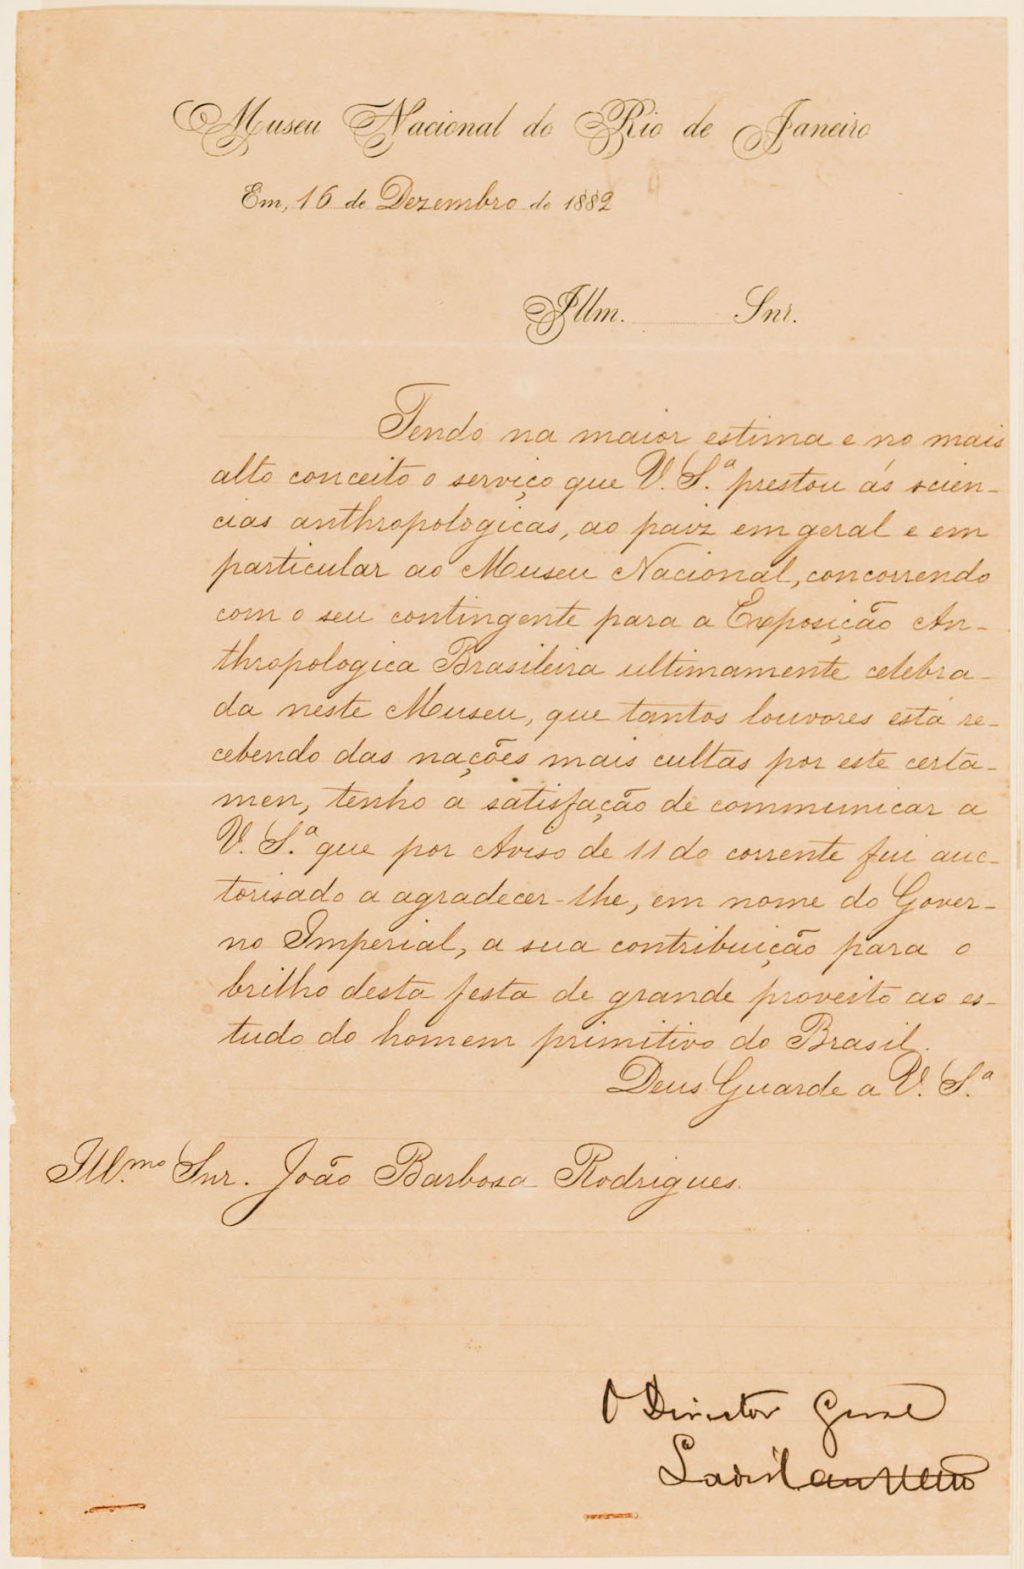 Museu Nacional do Rio de Janeiro
Em, 16 de Dezembro de 1882
Illm. Snr.
Tendo na maior estima e no mais
alto conceito o serviço que V. S.ª prestou ás scien-
cias anthropologicas, ao paiz em geral e em
particular ao Museu Nacional, concorrendo
com o seu contingente para a Exposição An-
thropologica Brasileira ultimamente celebra-
da neste Museu, que tantos louvores está re-
cebendo das nações mais cultas por este certa-
men, tenho a satisfação de communicar a
V. S.ª que por Aviso de 11 do corrente fui auc-
torisado a agradecer-lhe, em nome do Gover-
no Imperial, a sua contribuição para o
brilho desta festa de grande proveito ao es-
tudo do homem primitivo do Brasil.
Deus Guarde a V. S.ª
Ill.mo Snr. João Barbosa Rodrigues.
O Director Geral
Ladislau Netto